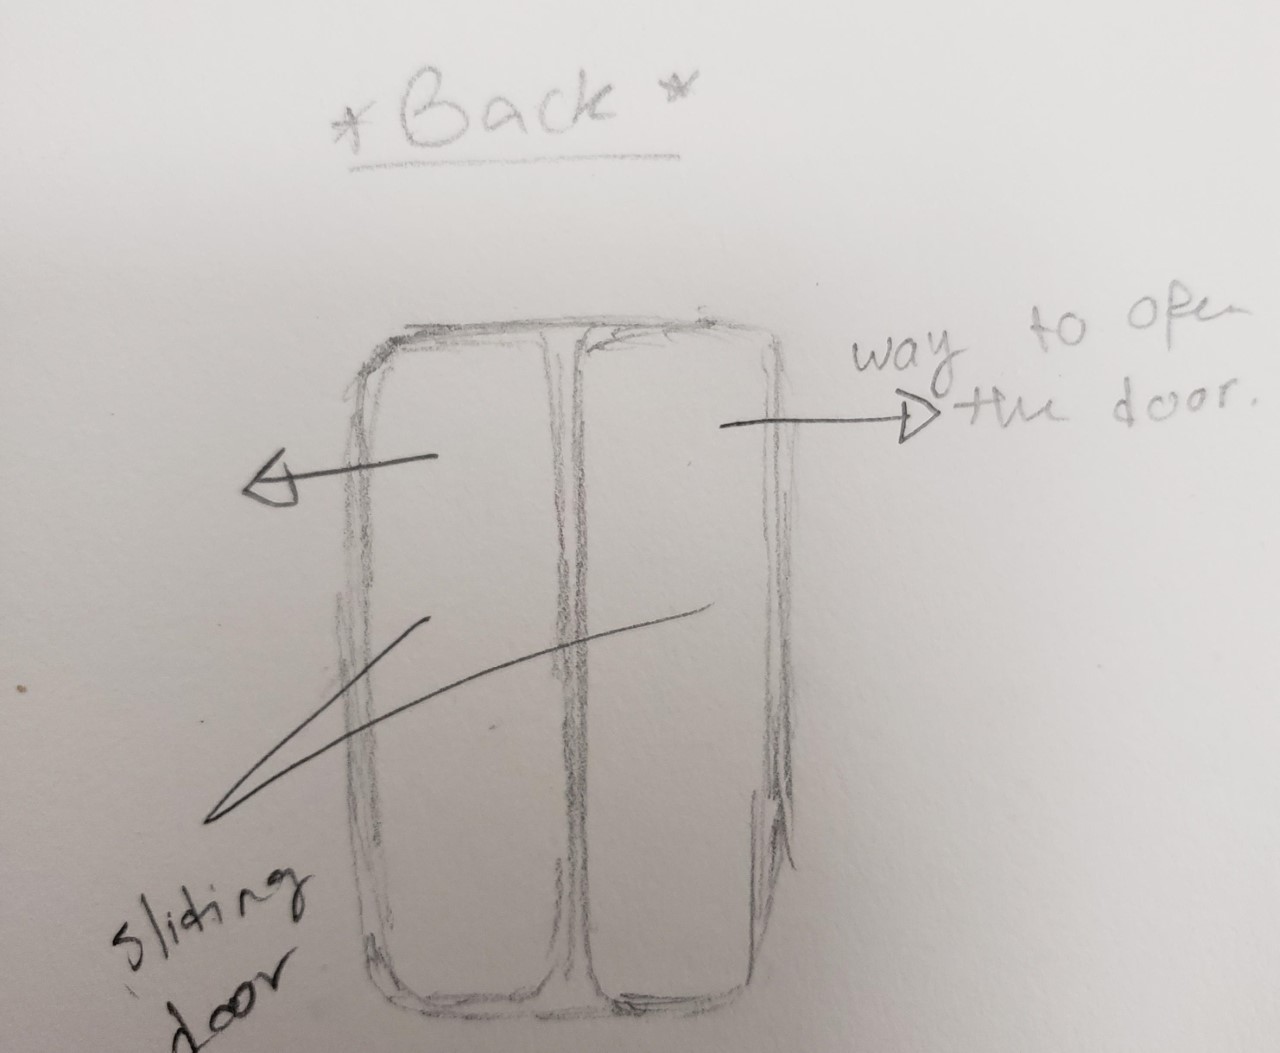 *Back*
way to open
the door.
sliding
door